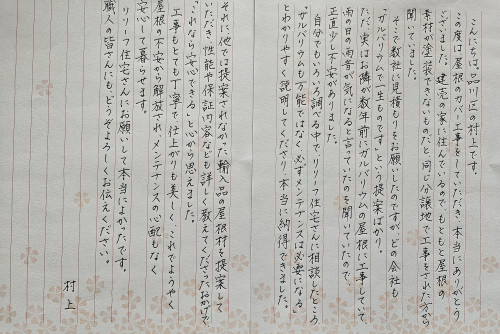 こんにちは。品川区の村上です。
この度は屋根のカバー工事をしていただき、本当にありがとう
ございました。建売の家に住んでいるので、もともと屋根の
素材が塗装できないものだと同じ分譲地で工事をされた方から
聞いていました。
そこで数社に見積もりをお願いしたのですが、どの会社も
「ガルバリウムで一生ものです」という提案ばかり。
ただ、実はお隣が数年前にガルバリウムの屋根に工事していて、
雨の日の雨音が気になると言っていたのを聞いていたので、
正直少し不安がありました。
自分でもいろいろ調べる中で、リリーフ住宅さんに相談したところ
「ガルバリウムも万能ではなく、必ずメンテナンスは必要になる」
とわかりやすく説明してくださり、本当に納得できました。
それに他では提案されなかった輸入品の屋根材を提案して
いただき、性能や保証内容なども詳しく教えてくださったおかげで、
「これなら安心できる」と心から思えました。
工事もとても丁寧で、仕上がりも美しく、これでようやく
屋根の不安から解放され、メンテナンスの心配もなく
安心して暮らせます。
リリーフ住宅さんにお願いして本当によかったです。
職人の皆さんにも、どうぞよろしくお伝えください。
村上